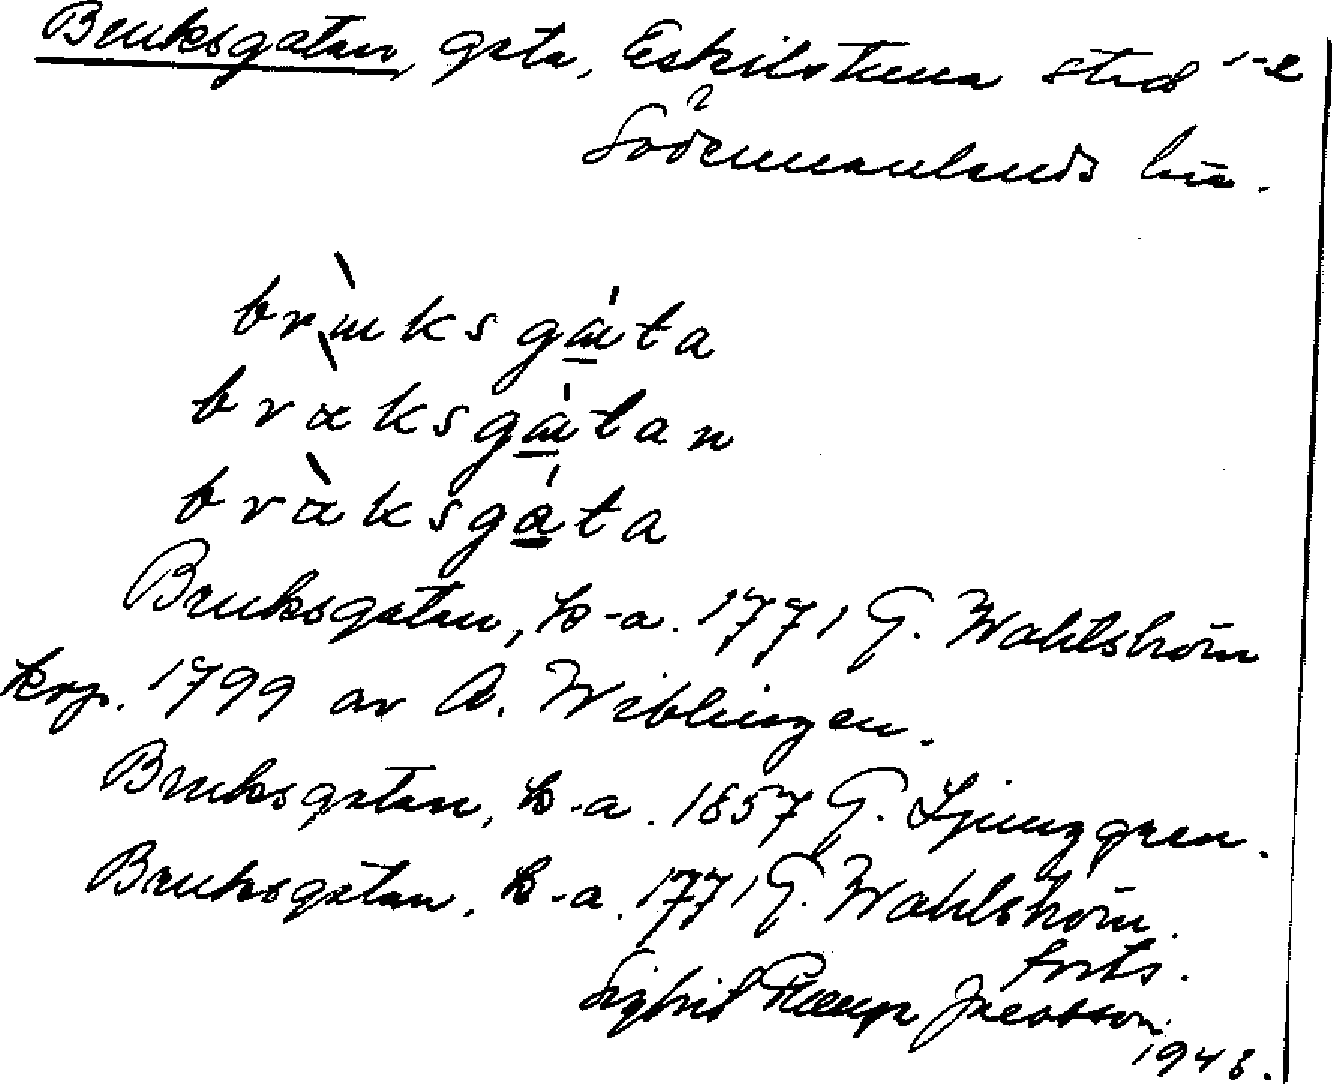 Bruksgatan, gata, Eskilstuna stad 1-2
Södermanlands län.
brùksgáta
brùksgátan
brùksgáta
Bruksgatan, k-a. 1771 G. Wahlström
kop. 1799 av A. Wiblingen.
Bruksgatan, k-a. 1857 G. Ljunggren.
Bruksgatan, k-a. 1771 G. Wahlström.
forts.
Sigrid Jacobsson
1948.